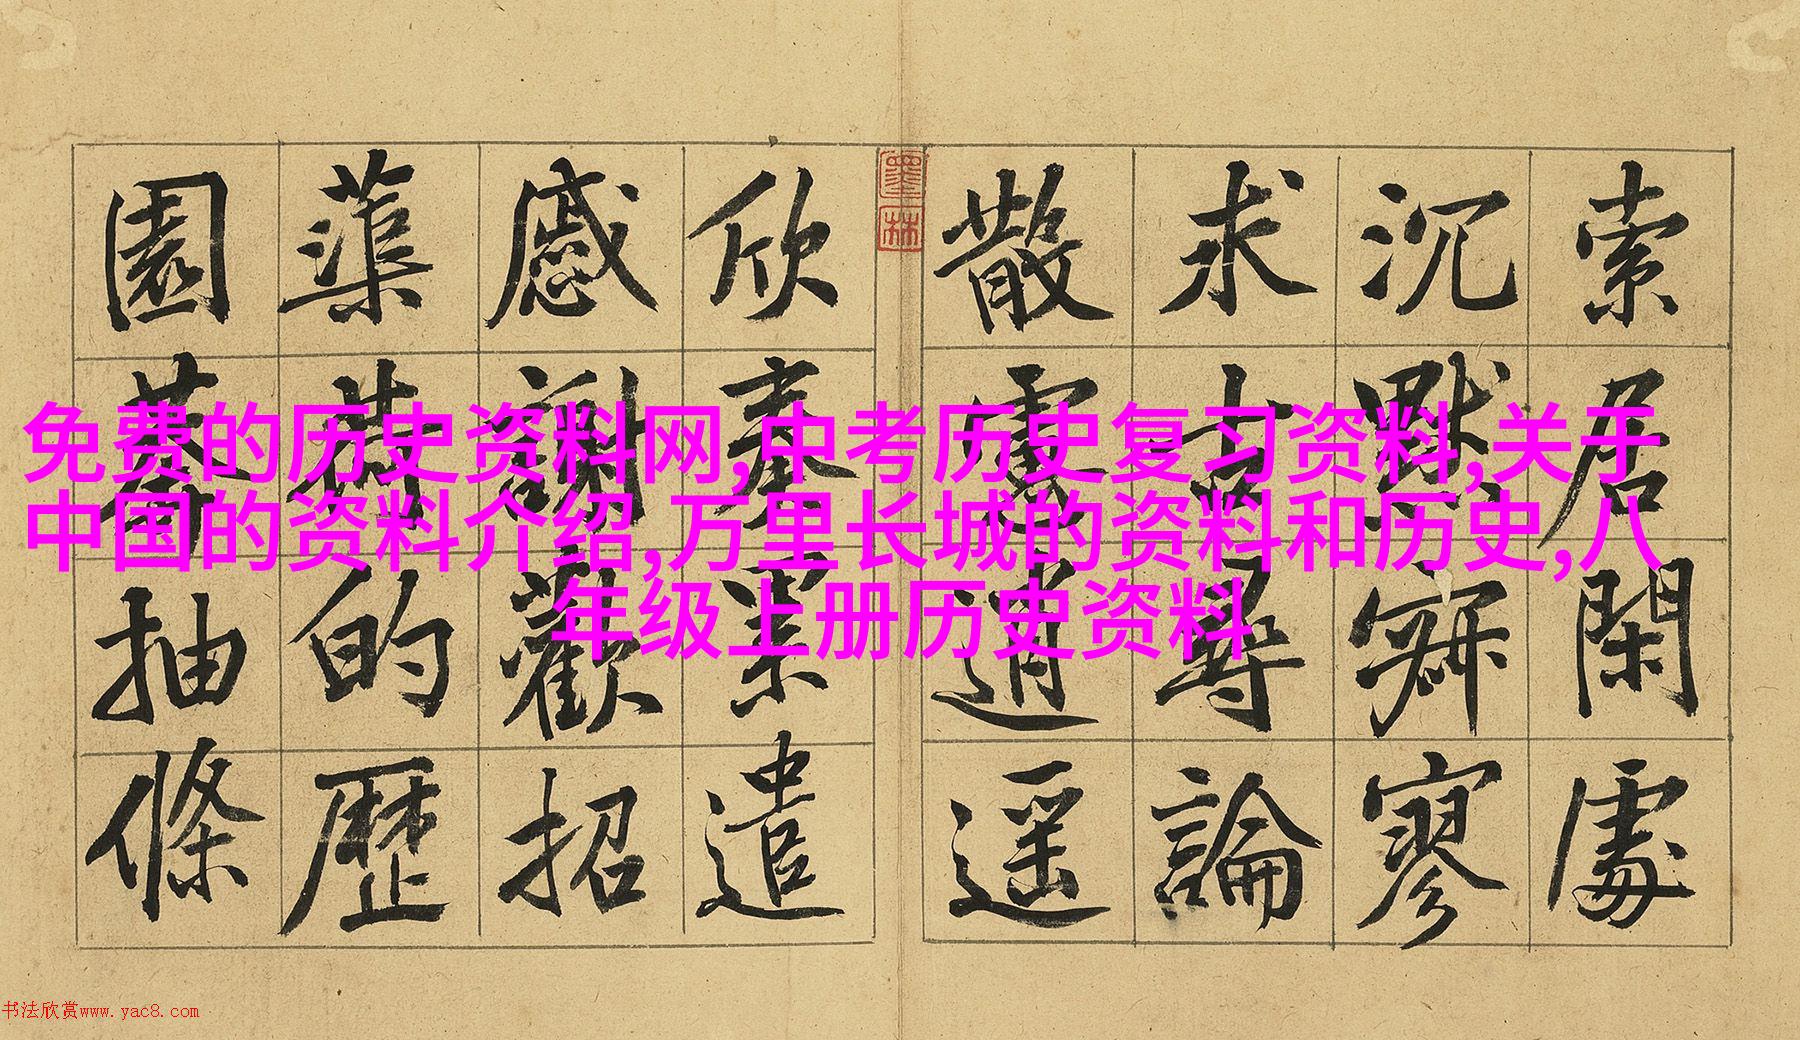 索居閑處
沉默寂寥
求古尋論
散慮逍遥
欣奏累遣
慼謝歡招
蕖荷的歷
園莽抽條
墨林
免费的历史资料网,中考历史复习资料,关于
中国的资料介绍,万里长城的资料和历史,八
年级上册历史资料
书法欣赏www.yac8.com